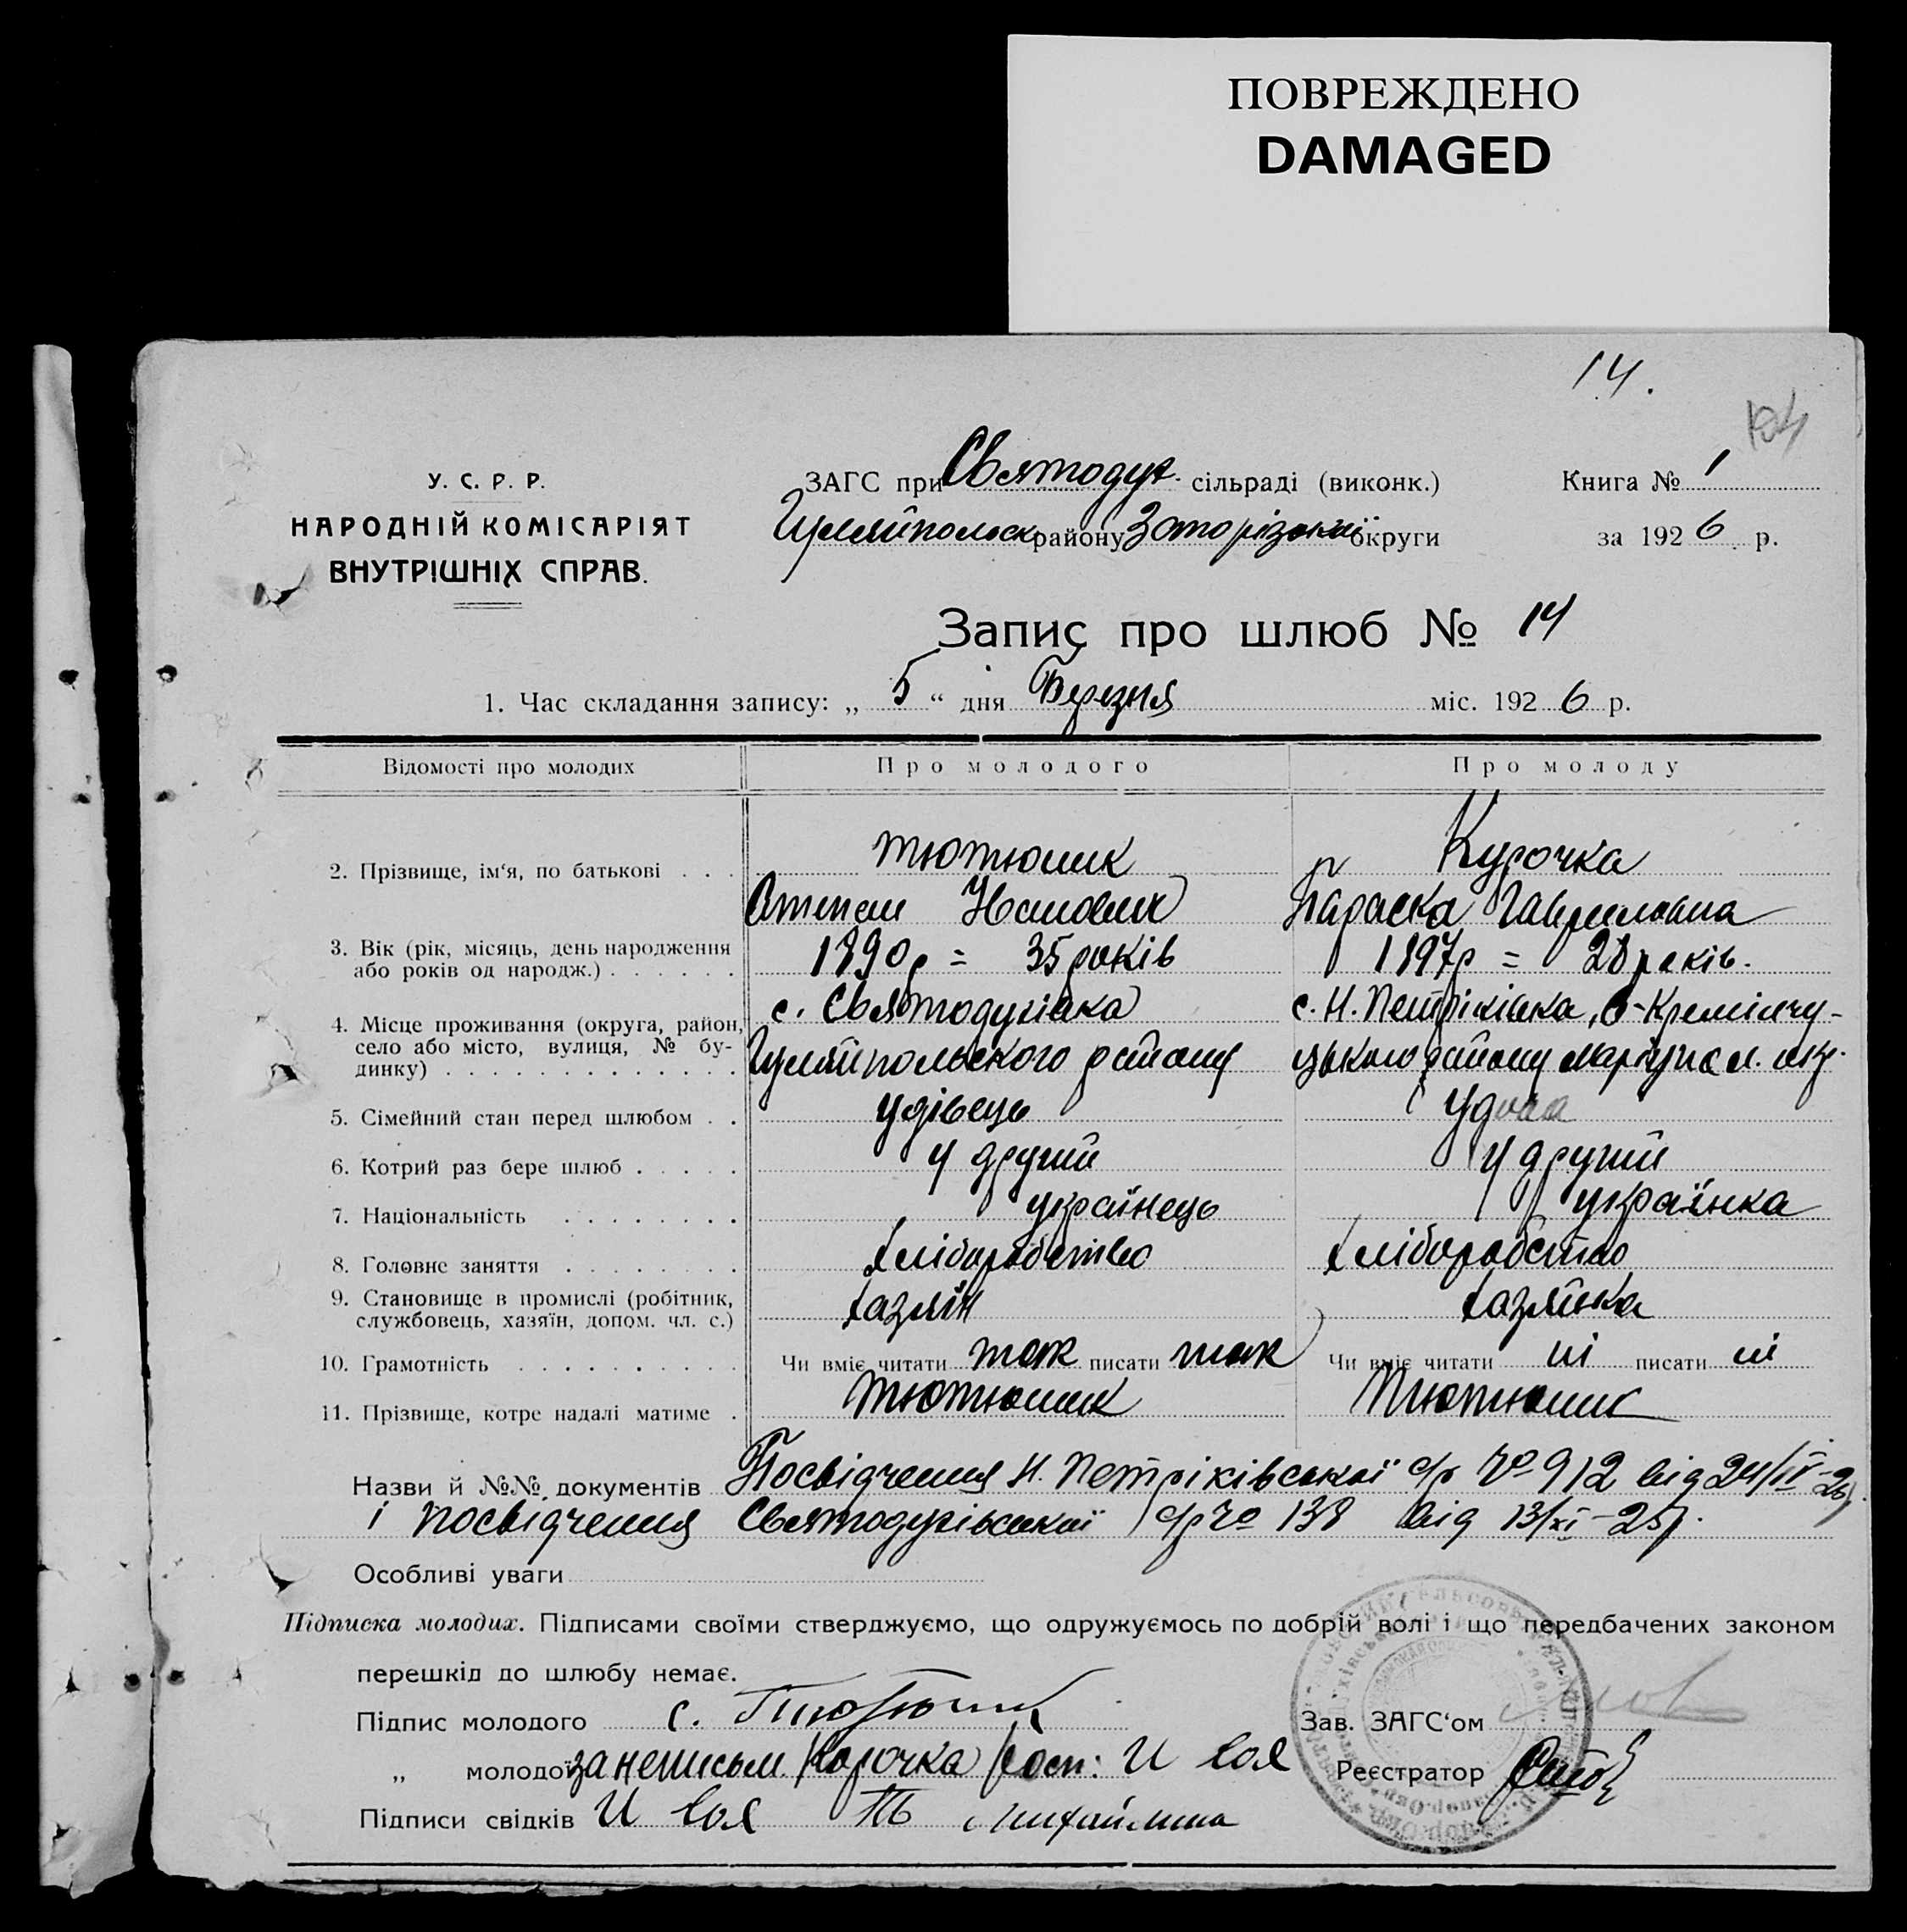 ПОВРЕЖДЕНО
DAMAGED
14.
У. С. Р. Р.
НАРОДНІЙ КОМІСАРІЯТ
ВНУТРІШНІХ СПРАВ.
ЗАГС при Святодух. сільраді (виконк.)
Гуляйпольск району Запорізької округи
Книга № 1
за 1926 р.
Запис про шлюб № 14
1. Час складання запису: „ 5 “ дня Березня міс. 1926 р.
Відомості про молодих Про молодого Про молоду
2. Прізвище, ім‘я, по батькові . . . Тютюник Курочка
Степан Іванович Параска Гавриловна
3. Вік (рік, місяць, день народження
або років од народж.) . . . . . . 1890р = 35 років 1897р = 28 років.
4. Місце проживання (округа, район,
село або місто, вулиця, № бу-
динку) . . . . . . . . . . . . .
с. Святодухівка
Гуляйпольського району
с. Н. Петріківка, В-Кремінчу-
цького району Маріупол. окр.
5. Сімейний стан перед шлюбом . . удівець удова
6. Котрий раз бере шлюб . . . . . у другий у другий
7. Національність . . . . . . . . українець українка
8. Головне заняття . . . . . . . . хліборобство хліборобство
9. Становище в промислі (робітник,
службовець, хазяїн, допом. чл. с.) хазяїн хазяйка
10. Грамотність . . . . . . . . . . Чи вміє читати так писати так Чи вміє читати ні писати ні
11. Прізвище, котре надалі матиме . Тютюник Тютюник
Назви й №№ документів Посвідчення Н. Петріківської с/р № 912 від 24/
і посвідчення Святодухівської с/р № 138 від 13/XI-25р.
Особливі уваги
Підписка молодих. Підписами своїми стверджуємо, що одружуємось по добрій волі і що передбачених законом
перешкід до шлюбу немає.
Підпис молодого С. Тютюник
„ молодої за неписьм. Курочка
Підписи свідків
Зав. ЗАГС‘ом
Реєстратор